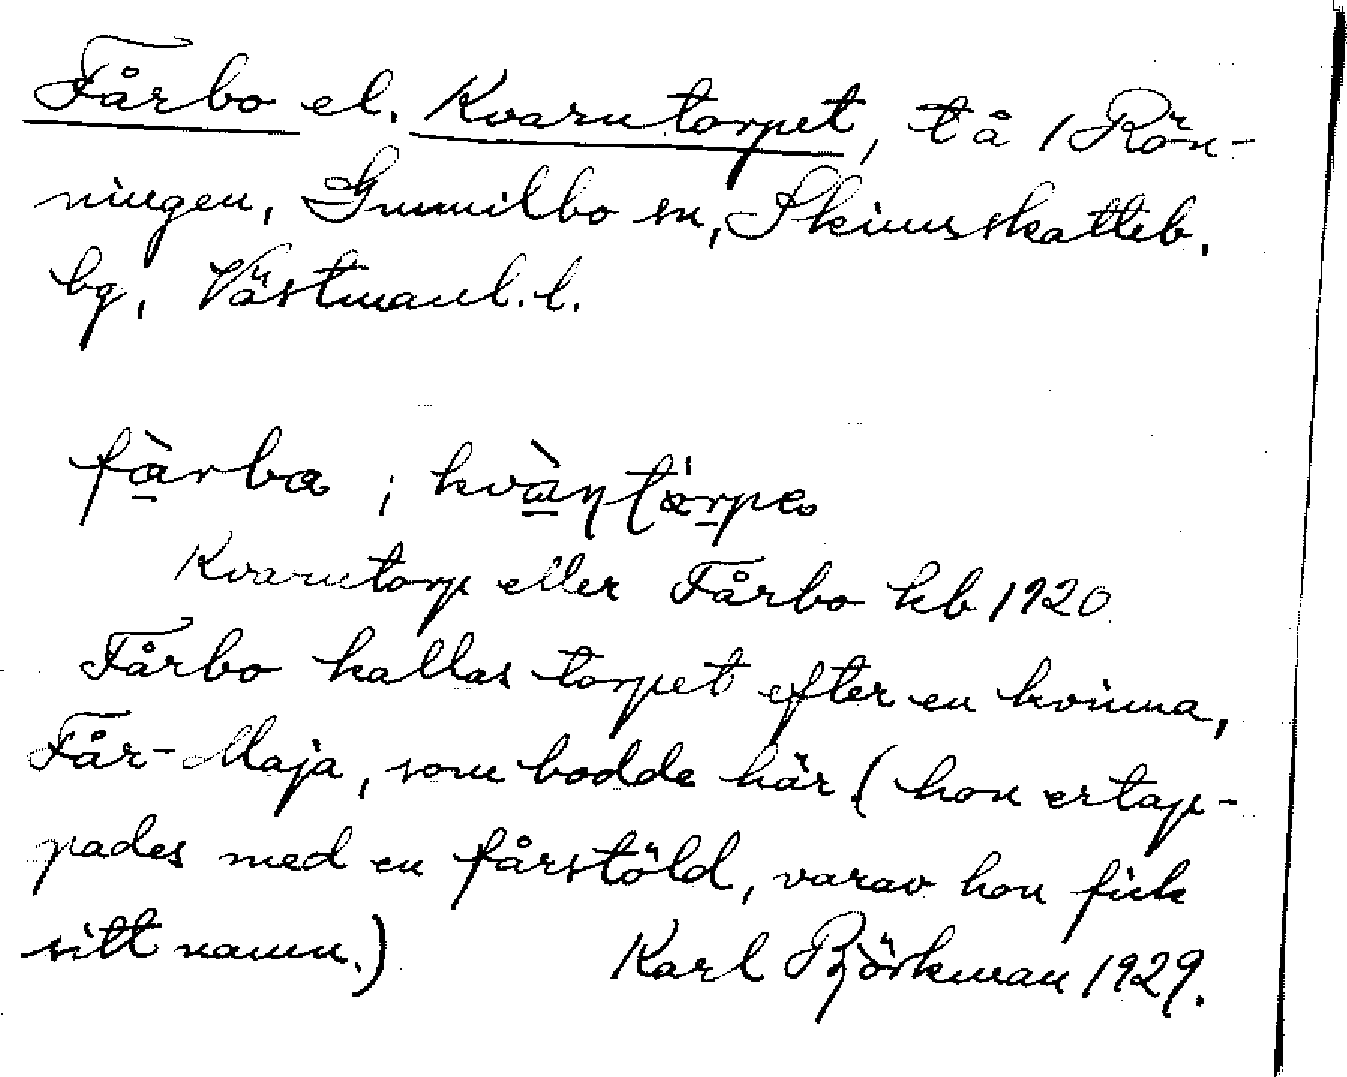 Fårbo el. Kvarntorpet, tå / Rön-
ningen, Gunnilbo sn, Skinnskatteb.
bg, Västmanl. l.
fàrba ; kvàηtàrpe
Kvarntorp eller Fårbo kb 1920.
Fårbo kallas torpet efter en kvinna,
Får-Maja, som bodde här (hon ertap-
pades med en fårstöld, varav hon fick
sitt namn.) Karl Björkman 1929.